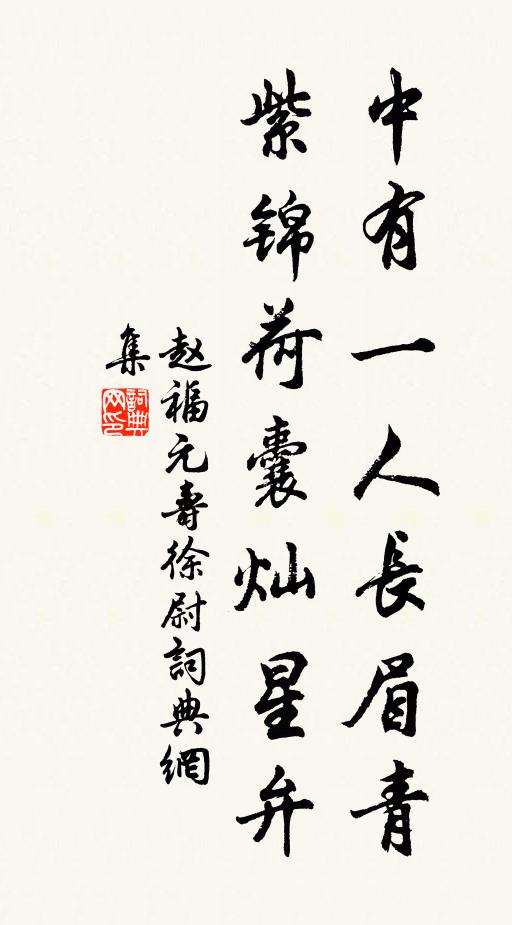 中有一人長眉青
紫锦荷囊灿星弁
赵福元壽徐尉詞典網
集
詞典
网印